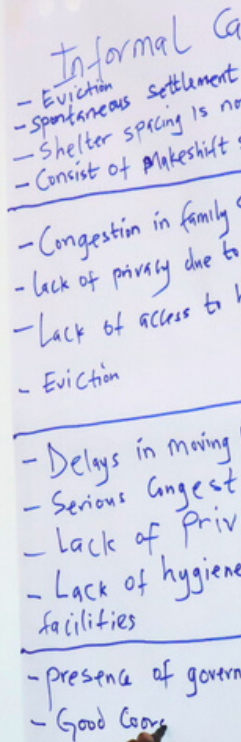 Informal Ca
- Eviction
- Spontaneous settlement
- Shelter spacing is no
- Consist of Makeshift s
- Congestion in family
- lack of privacy due to
- Lack of access to h
- Eviction
- Delays in moving
- Serious Congest
- Lack of Priv
- Lack of hygiene
facilities
- presence of govern
- Good Coord